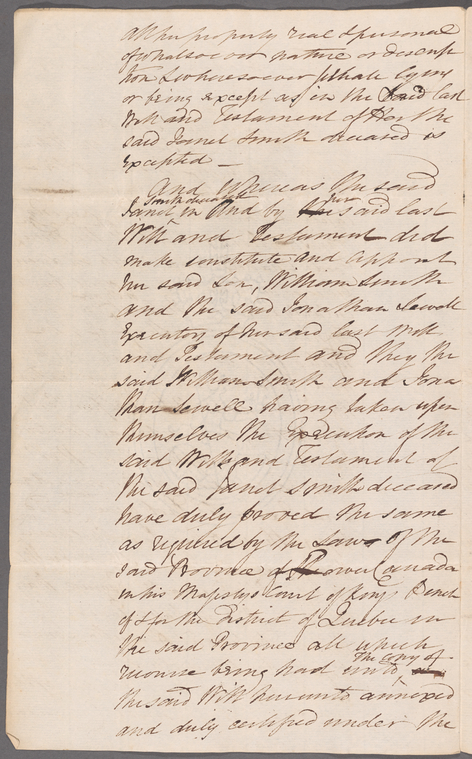 all her property real & personal
of whatsoever nature or descrip
tion & wheresoever situate lying
or being except as in the said Last
Will and Testament of Her the
said Janet Smith deceased is
excepted —
And Whereas the said
Smith deceased
Janet, in And by her said last
Will and Testament did
make constitute and appoint
her said Son, William Smith
and the said Jonathan Sewell
Executors of her said last Will
and Testament and they the
said William Smith and Jona
than Sewell having taken upon
themselves the Execution of the
said Will and Testament of
the said Janet Smith deceased
have duly proved the same
as required by the Laws of the
said Province of Lower Canada
in his Majestys Court of Kings Bench
of & for the District of Quebec in
the said Province all which
the copy of
recourse being had unto
the said Will hereunto annexed
and duly certified under the